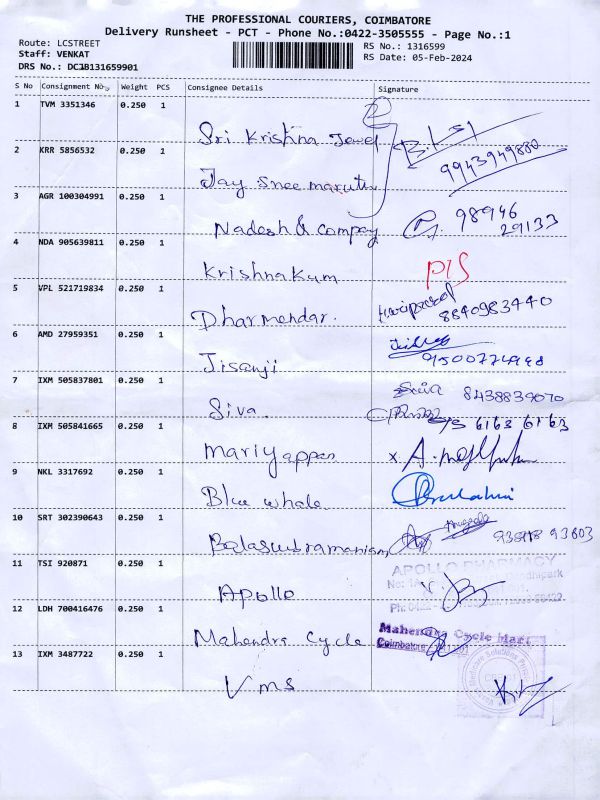 THE PROFESSIONAL COURIERS, COIMBATORE
Delivery Runsheet - PCT - Phone No.:0422-3505555 - Page No.:1
Route: LCSTREET
RS No.: 1316599
Staff: VENKAT
RS Date: 05-Feb-2024
DRS No.: DCJB131659901
S No Consignment No. Weight PCS Consignee Details Signature
1 TVM 3351346 0.250 1
Sri Krishna Jewel
2 KRR 5856532 0.250 1
9943949880
Jay Shree maruthi
3 AGR 100304991 0.250 1
Nadesh & Compay 98946
29133
4 NDA 905639811 0.250 1
Krishnakum
5 VPL 521719834 0.250 1
Dharmendar. 8840983440
6 AMD 27959351 0.250 1
Jisanji
7 IXM 505837801 0.250 1
8438839070
Siva.
8 IXM 505841665 0.250 1 6163 6163
Mariyappan
9 NKL 3317692 0.250 1
Blue whale
10 SRT 302390643 0.250 1
Balasubramaniam
11 TSI 920871 0.250 1
APOLLO PHARMACY
Apollo
12 LDH 700416476 0.250 1
Mahendra Cycle Mart
Mahendra Cycle Coimbatore
13 IXM 3487722 0.250 1
Vms